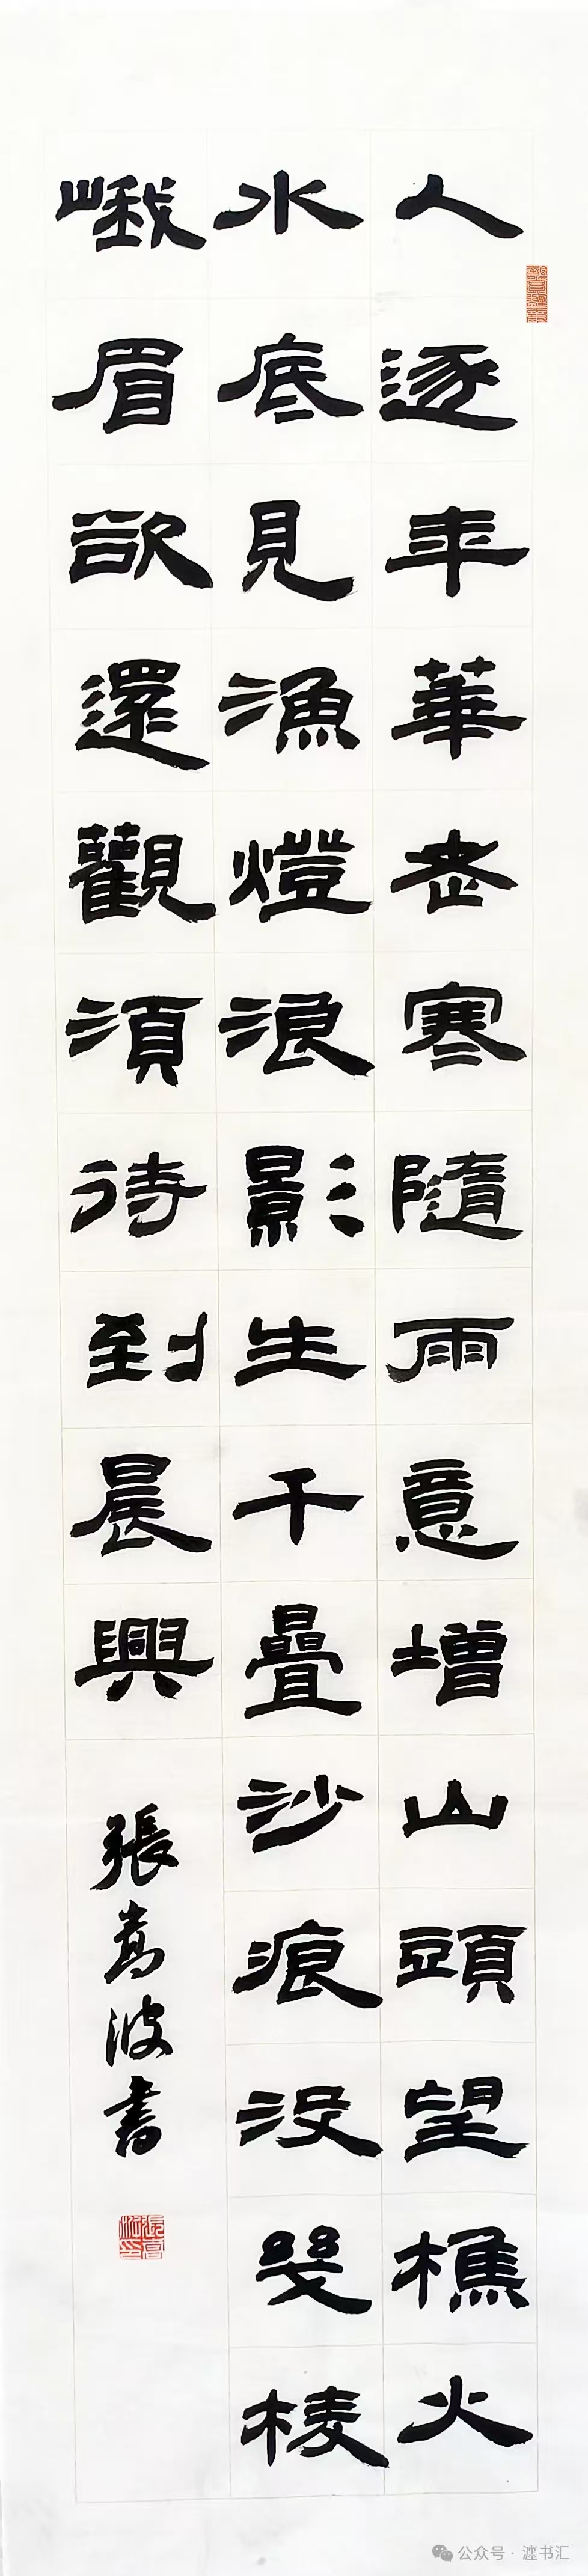 人逐年華老寒隨雨意增山頭望樵火
水底見漁燈浪影生千疊沙痕没幾棱
峨眉欲還觀須待到晨興
張嵩波書
公众号 · 瀍书汇